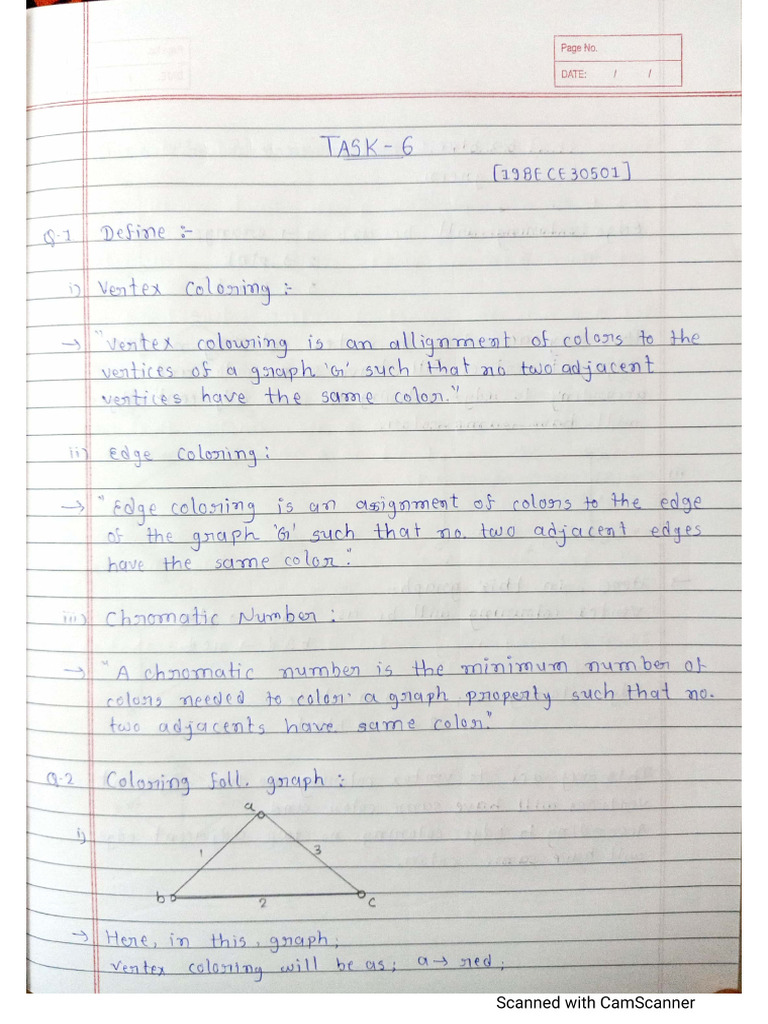 Page No.
DATE: / /
TASK-6
[19BECE30501]
Q.1 Define :-
i) Vertex Coloring :-
→ "Vertex colouring is an allignment of colors to the
vertices of a graph 'G' such that no two adjacent
vertices have the same color."
ii) Edge Coloring :
→ "Edge coloring is an assignment of colors to the edge
of the graph 'G' such that no. two adjacent edges
have the same color."
iii) Chromatic Number :
→ "A chromatic number is the minimum number of
colors needed to color a graph property such that no.
two adjacents have same color."
Q.2 Coloring foll. graph :
i)
a
1 3
b 2 c
→ Here, in this, graph;
vertex coloring will be as; a → red;
Scanned with CamScanner